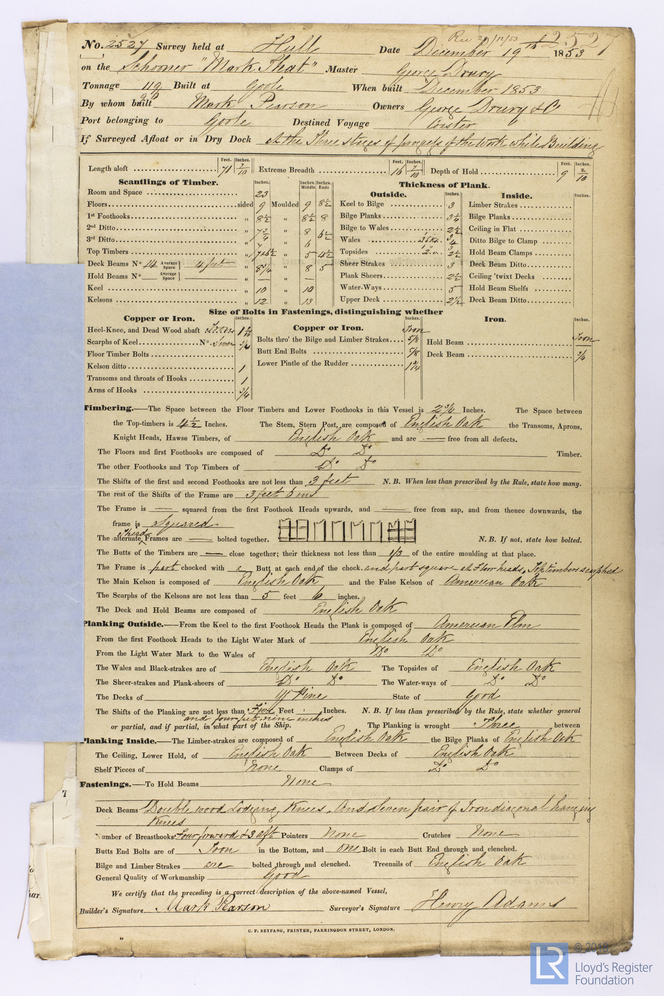 No. 2527 Survey held at Hull Date December 19th 1853
on the Schooner "Mark That" Master George Drury
Tonnage 119 Built at Goole When built December 1853
By whom built Mark Pearson Owners George Drury & Co
Port belonging to Goole Destined Voyage Coaster
If Surveyed Afloat or in Dry Dock At the Three stages of progress of the work while Building
Length aloft 71 Feet. Inches. Extreme Breadth 16 Depth of Hold 9
Scantlings of Timber.
Room and Space 23
Floors sided 9 Moulded 9 8½
1st Foothooks 8½ 8½ 8
2nd Ditto
3rd Ditto
Top Timbers
Deck Beams No. 14 Average Space 4 feet
Hold Beams No. Average Space
Keel 10 10
Kelsons 12 13
Thickness of Plank.
Outside.
Keel to Bilge 3
Bilge Planks
Bilge to Wales
Wales
Topsides
Sheer Strakes 3
Plank Sheers 2½
Water-Ways 5
Upper Deck 2½
Inside.
Limber Strakes
Bilge Planks
Ceiling in Flat
Ditto Bilge to Clamp
Hold Beam Clamps
Deck Beam Ditto
Ceiling 'twixt Decks
Hold Beam Shelfs
Deck Beam Ditto
Size of Bolts in Fastenings, distinguishing whether
Copper or Iron.
Heel-Knee, and Dead Wood abaft
Scarphs of Keel No.
Floor Timber Bolts
Kelson ditto 1
Transoms and throats of Hooks 1
Arms of Hooks
Copper or Iron. Iron
Bolts thro' the Bilge and Limber Strakes 5/8
Butt End Bolts 5/8
Lower Pintle of the Rudder
Iron.
Hold Beam Iron
Deck Beam
Timbering.—The Space between the Floor Timbers and Lower Foothooks in this Vessel is Inches. The Space between
the Top-timbers is 4½ Inches. The Stem, Stern Post, are composed of English Oak the Transoms, Aprons,
Knight Heads, Hawse Timbers, of English Oak and are — free from all defects.
The Floors and first Foothooks are composed of Do Do Timber.
The other Foothooks and Top Timbers of Do Do
The Shifts of the first and second Foothooks are not less than 3 feet N. B. When less than prescribed by the Rule, state how many.
The rest of the Shifts of the Frame are 3 feet 6 ins
The Frame is — squared from the first Foothook Heads upwards, and — free from sap, and from thence downwards, the
frame is Squared
The alternate Frames are — bolted together. N. B. If not, state how bolted.
The Butts of the Timbers are — close together; their thickness not less than 1/3 of the entire moulding at that place.
The Frame is part chocked with a Butt at each end of the chock. and part square at Floor heads, Toptimbers scarphed
The Main Kelson is composed of English Oak and the False Kelson of American Oak
The Scarphs of the Kelsons are not less than 5 feet 6 inches.
The Deck and Hold Beams are composed of English Oak
Planking Outside.—From the Keel to the first Foothook Heads the Plank is composed of American Elm
From the first Foothook Heads to the Light Water Mark of English Oak
From the Light Water Mark to the Wales of Do Do
The Wales and Black-strakes are of English Oak The Topsides of English Oak
The Sheer-strakes and Plank-sheers of Do Do The Water-ways of Do Do
The Decks of Y Pine State of Good
The Shifts of the Planking are not less than Five Feet Inches. N. B. If less than prescribed by the Rule, state whether general
and four feet nine inches
or partial, and if partial, in what part of the Ship. The Planking is wrought Three between
Planking Inside.—The Limber-strakes are composed of English Oak the Bilge Planks of English Oak
The Ceiling, Lower Hold, of English Oak Between Decks of English Oak
Shelf Pieces of None Clamps of Do Do
Fastenings.—To Hold Beams None
Deck Beams Double wood Lodging Knees. And Seven pair of Iron diagonal hanging
Knees
Number of Breasthooks Four forward & 3 aft Pointers None Crutches None
Butts End Bolts are of Iron in the Bottom, and one Bolt in each Butt End through and clenched.
Bilge and Limber Strakes are bolted through and clenched. Treenails of English Oak
General Quality of Workmanship Good
We certify that the preceding is a correct description of the above-named Vessel,
Builder's Signature Mark Pearson Surveyor's Signature Henry Adams
C. F. SEYFANG, PRINTER, FARRINGDON STREET, LONDON.
LR
Lloyd's Register
Foundation